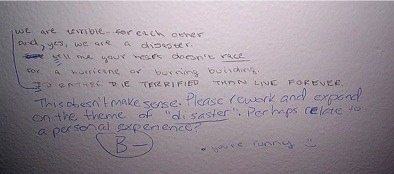 we are terrible for each other
and, yes, we are a disaster.
tell me your heart doesn't race
for a hurricane or burning building.
I'D RATHER DIE TERRIFIED THAN LIVE FOREVER.
This doesn't make sense. Please rework and expand
on the theme of "disaster". Perhaps relate to
a personal experience?
B-
• you're funny :)